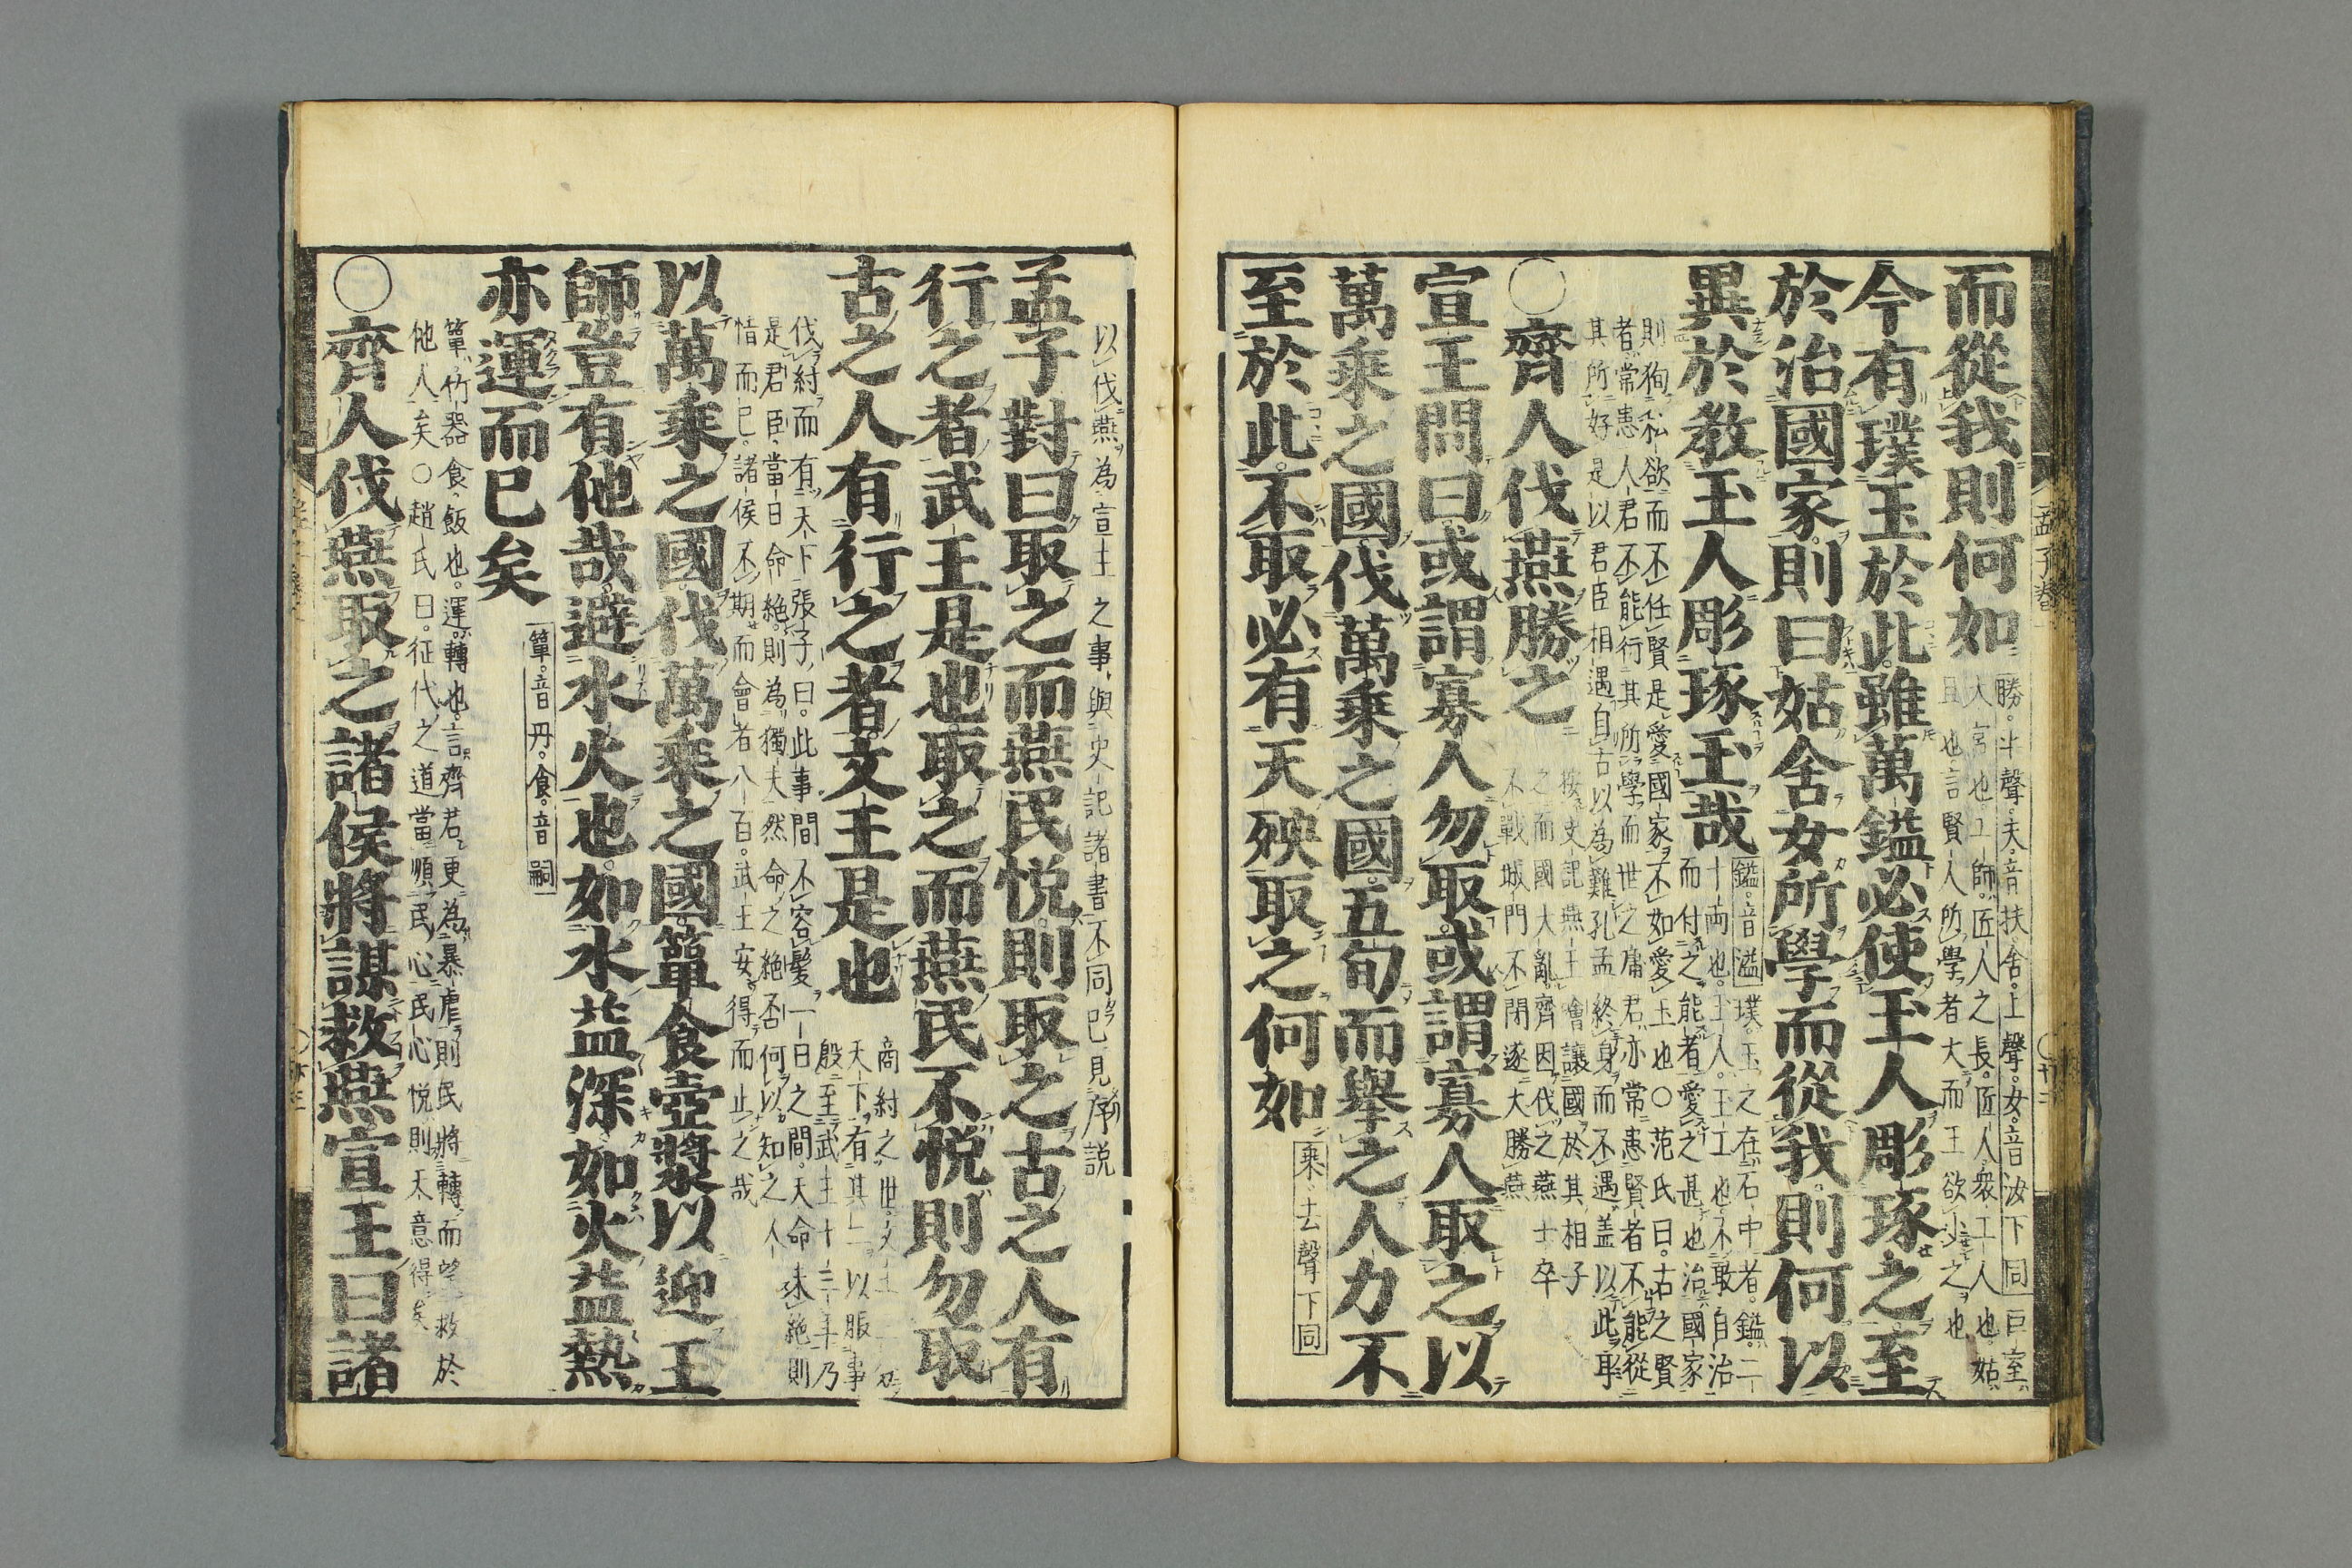 而從我則何如
勝平聲夫音扶舍上聲女音汝下同
巨室
大宮也工師匠人之長匠人衆工人也姑
且也言賢人所學者大而王欲少之也
今有璞玉於此雖萬鎰必使玉人彫琢之至
於治國家則曰姑舍女所學而從我則何以
異於敎玉人彫琢玉哉
鎰音溢
璞玉之在石中者鎰二
十兩也玉人玉工也不敢自治
而付之能者愛之甚也治國家
則狥私欲而不任賢是愛國家不如愛玉也○范氏曰古之賢
者常患人君不能行其所學而世之庸君亦常患賢者不能從
其所好是以君臣相遇自古以為難孔孟終身而不遇盖以此耳
○齊人伐燕勝之
按史記燕王噲讓國於其相子
之而國大亂齊因伐之燕士卒
不戰城門不閉遂大勝燕
宣王問曰或謂寡人勿取或謂寡人取之以
萬乘之國伐萬乘之國五旬而舉之人力不
至於此不取必有天殃取之何如
乘去聲下同
以伐燕為宣王之事與史記諸書不同已見序説
孟子對曰取之而燕民悦則取之古之人有
行之者武王是也取之而燕民不悦則勿取
古之人有行之者文王是也
商紂之世文王
天下有其二以服事
殷至武王十三年乃
伐紂而有天下張子曰此事間不容髮一日之間天命未絶則
是君臣當日命絶則為獨夫然命之絶否何以知之人
情而已諸侯不期而會者八百武王安得而止之哉
以萬乘之國伐萬乘之國簞食壺漿以迎王
師豈有他哉避水火也如水益深如火益熱
亦運而已矣
簞音丹食音嗣
簞竹器食飯也運轉也言齊君更為暴虐則民將轉而望救於
他人矣○趙氏曰征伐之道當順民心民心悦則天意得矣
○齊人伐燕取之諸侯將謀救燕宣王曰諸